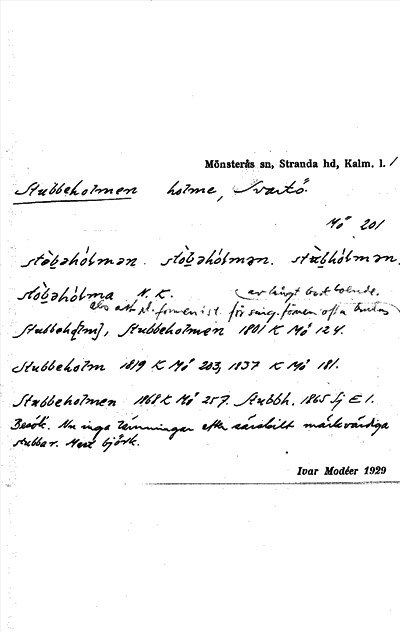 Mönsterås sn, Stranda hd, Kalm. l. /
Stubbeholmen holme, Svartö.
Mö 201
stòb̥əhólmən. stòb̥əhólmən. stùb̥hólmən.
stòb̥əhólma N. K. (av långt bort boende.
els. att pl. formen ist. för sing. formen ofta
Stubbeh[lm], Stubbeholmen 1801 K Mö 124.
Stubbeholm 1819 K Mö 203, 1837 K Mö 181.
Stubbeholmen 1868 K Mö 257. Stubbh. 1865 Sj E 1.
Besök. Nu inga lämningar efter särskilt märkvärdiga
stubbar. Mest björk.
Ivar Modéer 1929